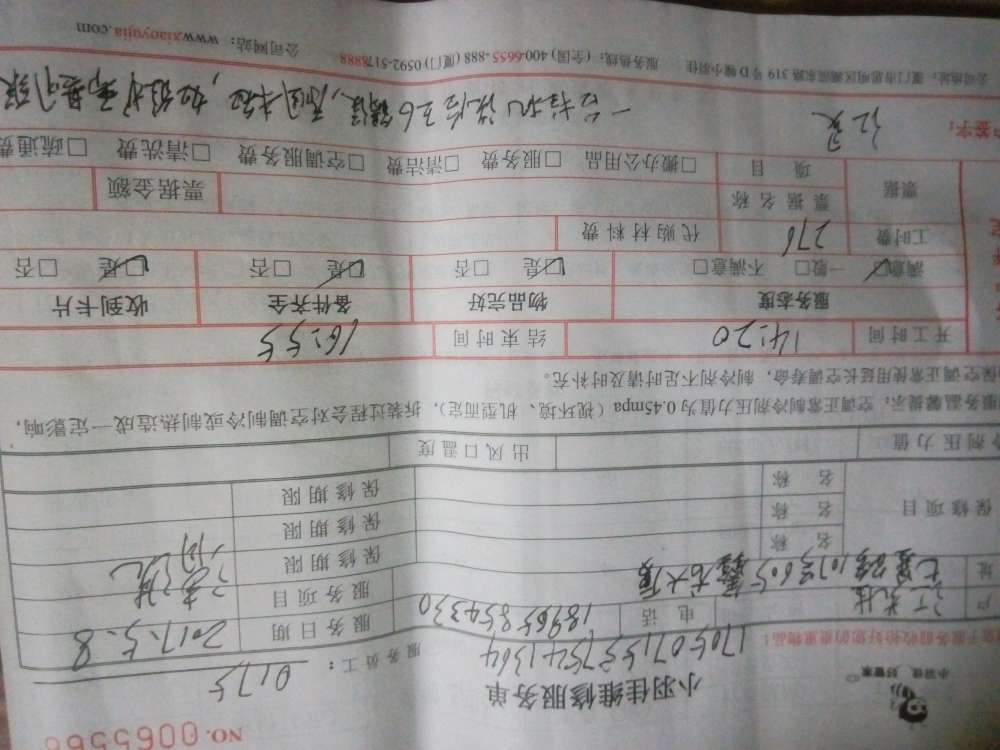 NO. 0065566
小羽佳 好管家
小羽佳维修服务单
服务员工： 0175
17050715537541364
客户服务前收拾好您的重要物品！
户 江先生 电 话 18965854330 服务日期 2017.5.8
址 服务项目 清洗
保修项目 名 称 保修期限
名 称 保修期限
名 称 保修期限
冷剂压力值 出风口温度
服务温馨提示：空调正常制冷剂压力值为0.45mpa（视环境、机型而定），拆装过程会对空调制冷或制热造成一定影响，
保空调正常使用延长空调寿命，制冷剂不足时请及时补充。
开工时间 14:20 结束时间 16:55
服务态度 物品完好 备件齐全 收到卡片
满意☑ 一般□ 不满意□ ☑是 □否 ☑是 □否 ☑是 □否
工时费 276 代购材料费
票据 票据名称 票据金额
项 目 □搬办公用品 □服务费 □清洁费 □空调服务费 □清洗费 □疏通费
签字：
公司地址：厦门市思明区湖滨东路319号D幢小羽佳 服务热线：(全国) 400-6655-888 (厦门) 0592-5178888 公司网站：www.xiaoyujia.com